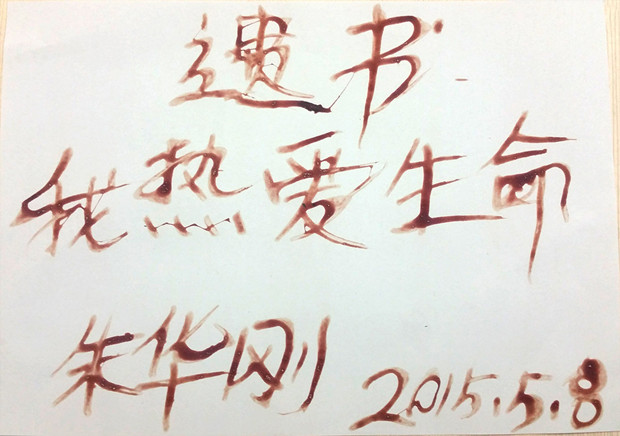 遗书
我热爱生命
朱华刚 2015.5.8